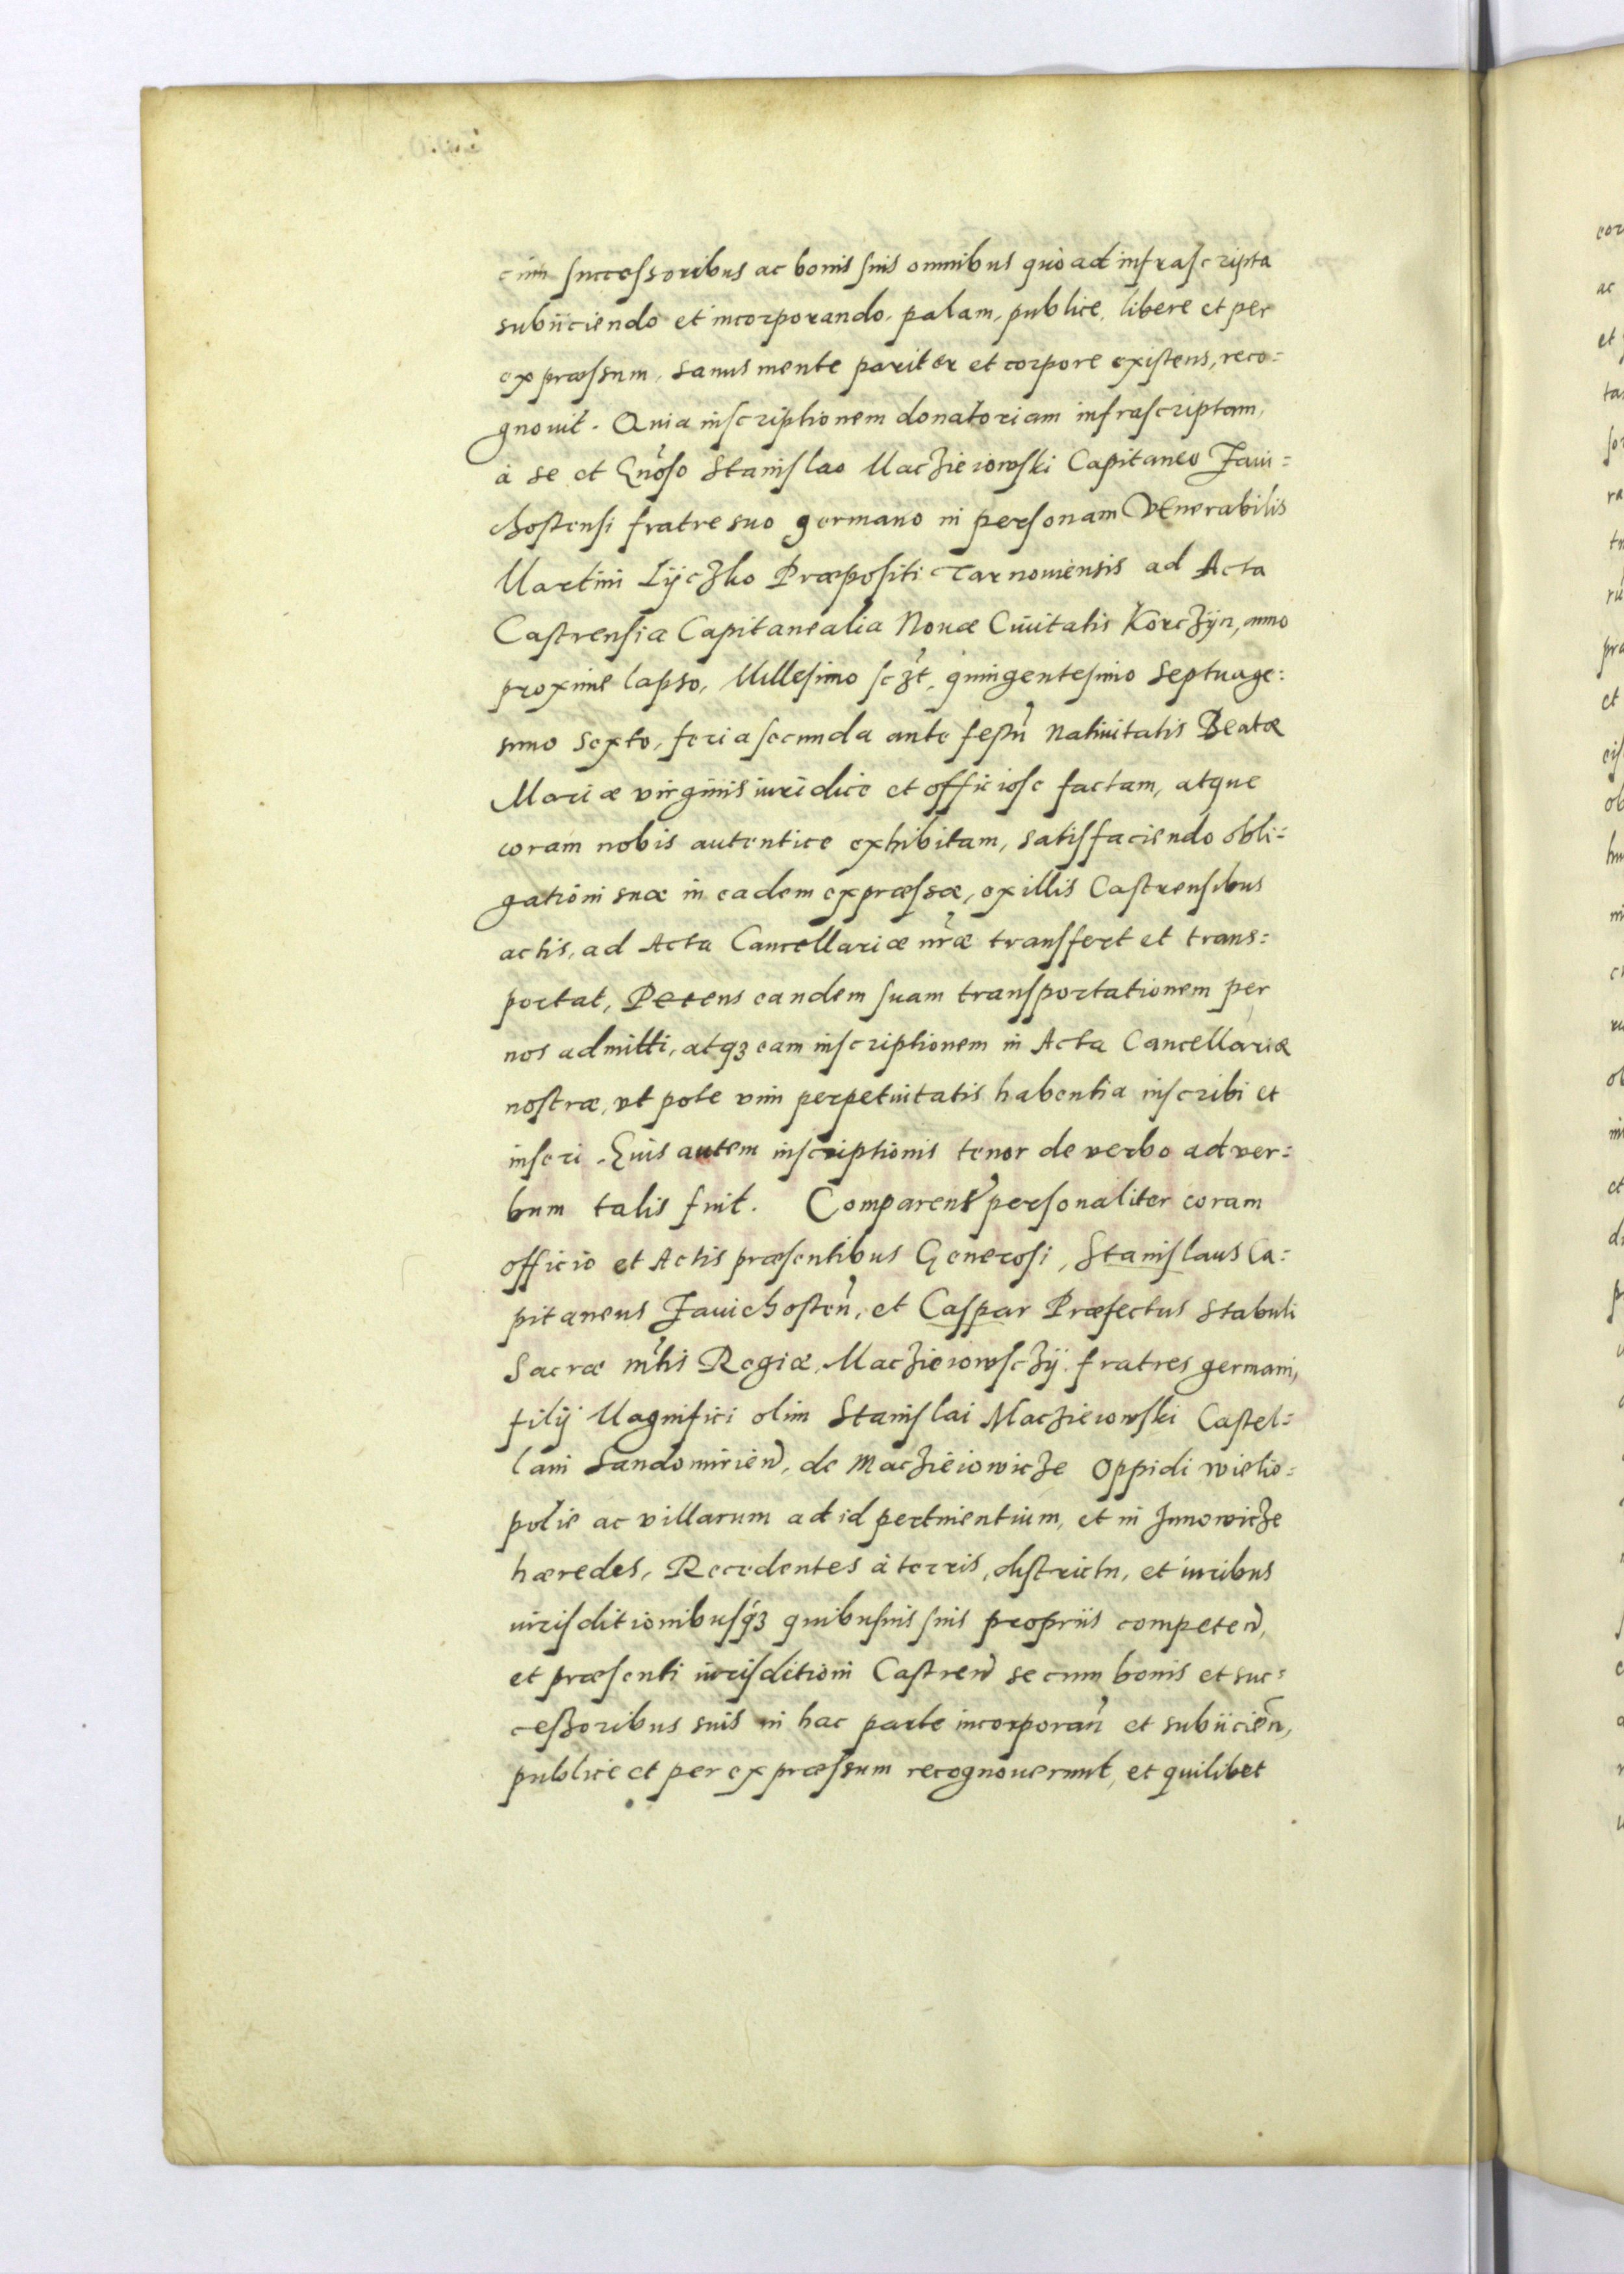 cum successoribus ac bonis suis omnibus quo ad infrascripta
subiiciendo et incorporando, palam, publice, libere et per
expræssum, sanus mente pariter et corpore existens, reco=
gnouit. Quia inscriptionem donatoriam infrascriptam,
à se et Gnoso Stanislao Macżieiowski Capitaneo Zaui=
chostensi fratre suo germano in personam Venerabilis
Martini Liÿczko Præpositi Tarnouiensis ad Acta
Castrensia Capitanealia Nouæ Ciuitatis Korczÿn, anno
proxime lapso, Millesimo sczt, quingentesimo septuage:
simo sexto, feria secunda ante festu Natiuitatis Beatæ
Mariæ virginis iuridice et officiose factam, atque
coram nobis autentice exhibitam, satisfaciendo obli=
gationi suæ in eadem expræssæ, ex illis Castrensibus
actis, ad Acta Cancellariæ nræ transfert et trans=
portat, Petens eandem suam transportationem per
nos admitti, atq3 eam inscriptionem in Acta Cancellariæ
nostræ, vt pote vim perpetuitatis habentia inscribi et
inseri. Cuis autem inscriptionis tenor de verbo ad ver=
bum talis fuit. Comparens personaliter coram
officio et Actis præsentibus Generosi, Stanislaus Ca=
pitaneus Zauichosten, et Caspar Præfectus Stabuli
Sacræ mtis Regiæ, Maczieiowsczÿ fratres germani,
filij Magnifici olim Stanislai Maczieiowski Castel=
lani Sandomirien, de Maczieiowicze Oppidi wielo=
polie ac villarum ad id pertinentium, et in Junowicze
hæredes, Recedentes à terris, districtu, et iuribus
iurisditionibusq3 quibusuis suis propriis competen,
et præsenti iurisditioni Castren se cum bonis et suc=
cessoribus suis in hac parte incorporan et subiicien,
publice et per expræssum recognouerunt, et quilibet